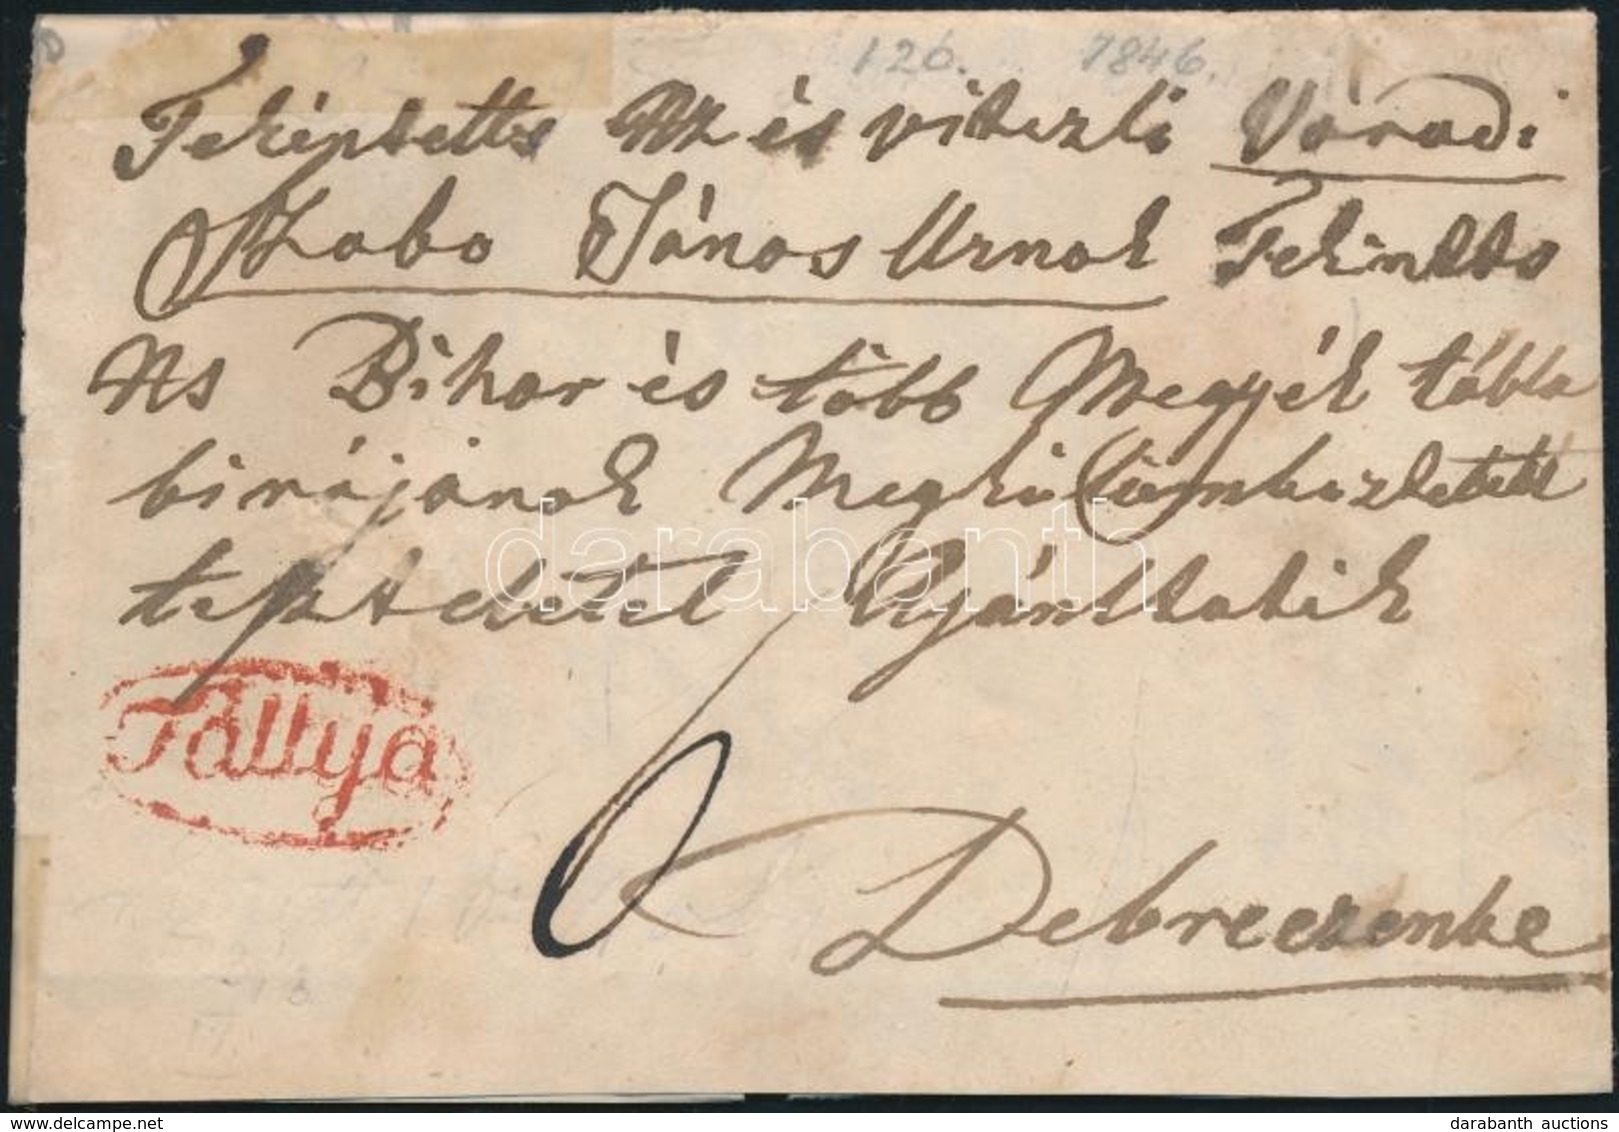 120. 1846.
Tekéntettes Nz és vitézli Váradi
Szabo János Urnak Tekintetes
Ns Bihar és több Megyék tábla
birájának Megkülömböztetett
tisztelettel Ajánltatik
Tállya
6
Debreczenbe
darabanth
darabanth auctions